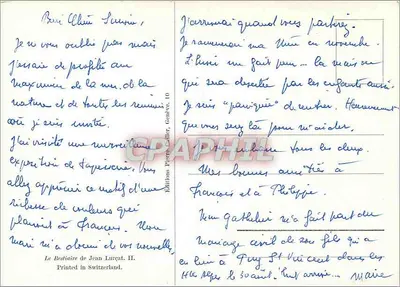 Bien Chère
Je ne vous oublie pas mais
j'essaie de profiter au
maximum de la mer, de la
nature et de toutes les
où je suis invitée.
J'ai visité une merveilleuse
exposition de tapisseries, vous
allez apprécier ce motif d'une
richesse de couleurs qui
plairait à François. Mon
mari m'a donné de vos nouvelles.
Le Bestiaire de Jean Lurçat, II.
Printed in Switzerland.
Editions Perret-Gentil, Genève. 10
J'arriverai quand vous partirez.
Je ramènerai ma Mère en novembre.
L'hiver me fait peur... la maison
qui sera désertée par les enfants aussi.
Je suis "paniquée" de rentrer. Heureusement
que vous serez là pour m'aider.
Je vous embrasse tous les deux.
Mes bonnes amitiés à
François et à Philippe.
m'a fait part du
mariage civil de son fils qui a
eu lieu à St Vincent dans les
le 30 août. Marie